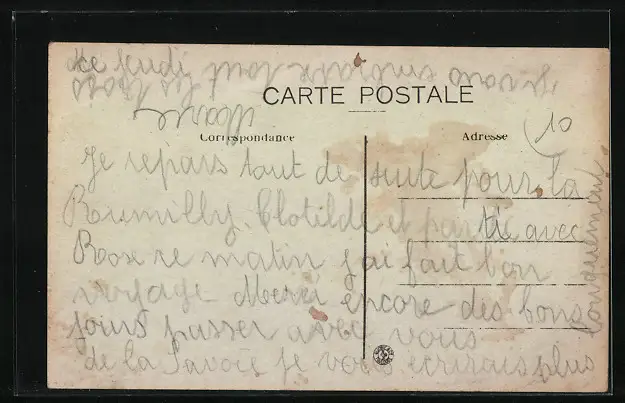 Ce jeudi
Je vous embrasse tout
Marie
CARTE POSTALE
Correspondance
Adresse
10
Je repars tout de suite pour la
Rumilly. Clotilde et partie avec
Rose ce matin j'ai fait bon
voyage Merci encore des bons
jours passer avec vous
de la Savoie je vous écrirais plus
longuement